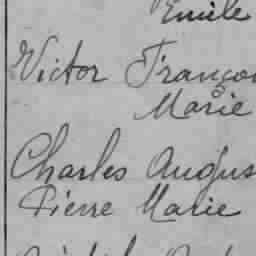 Emile
Victor Françoi
Marie
Charles Augus
Pierre Marie